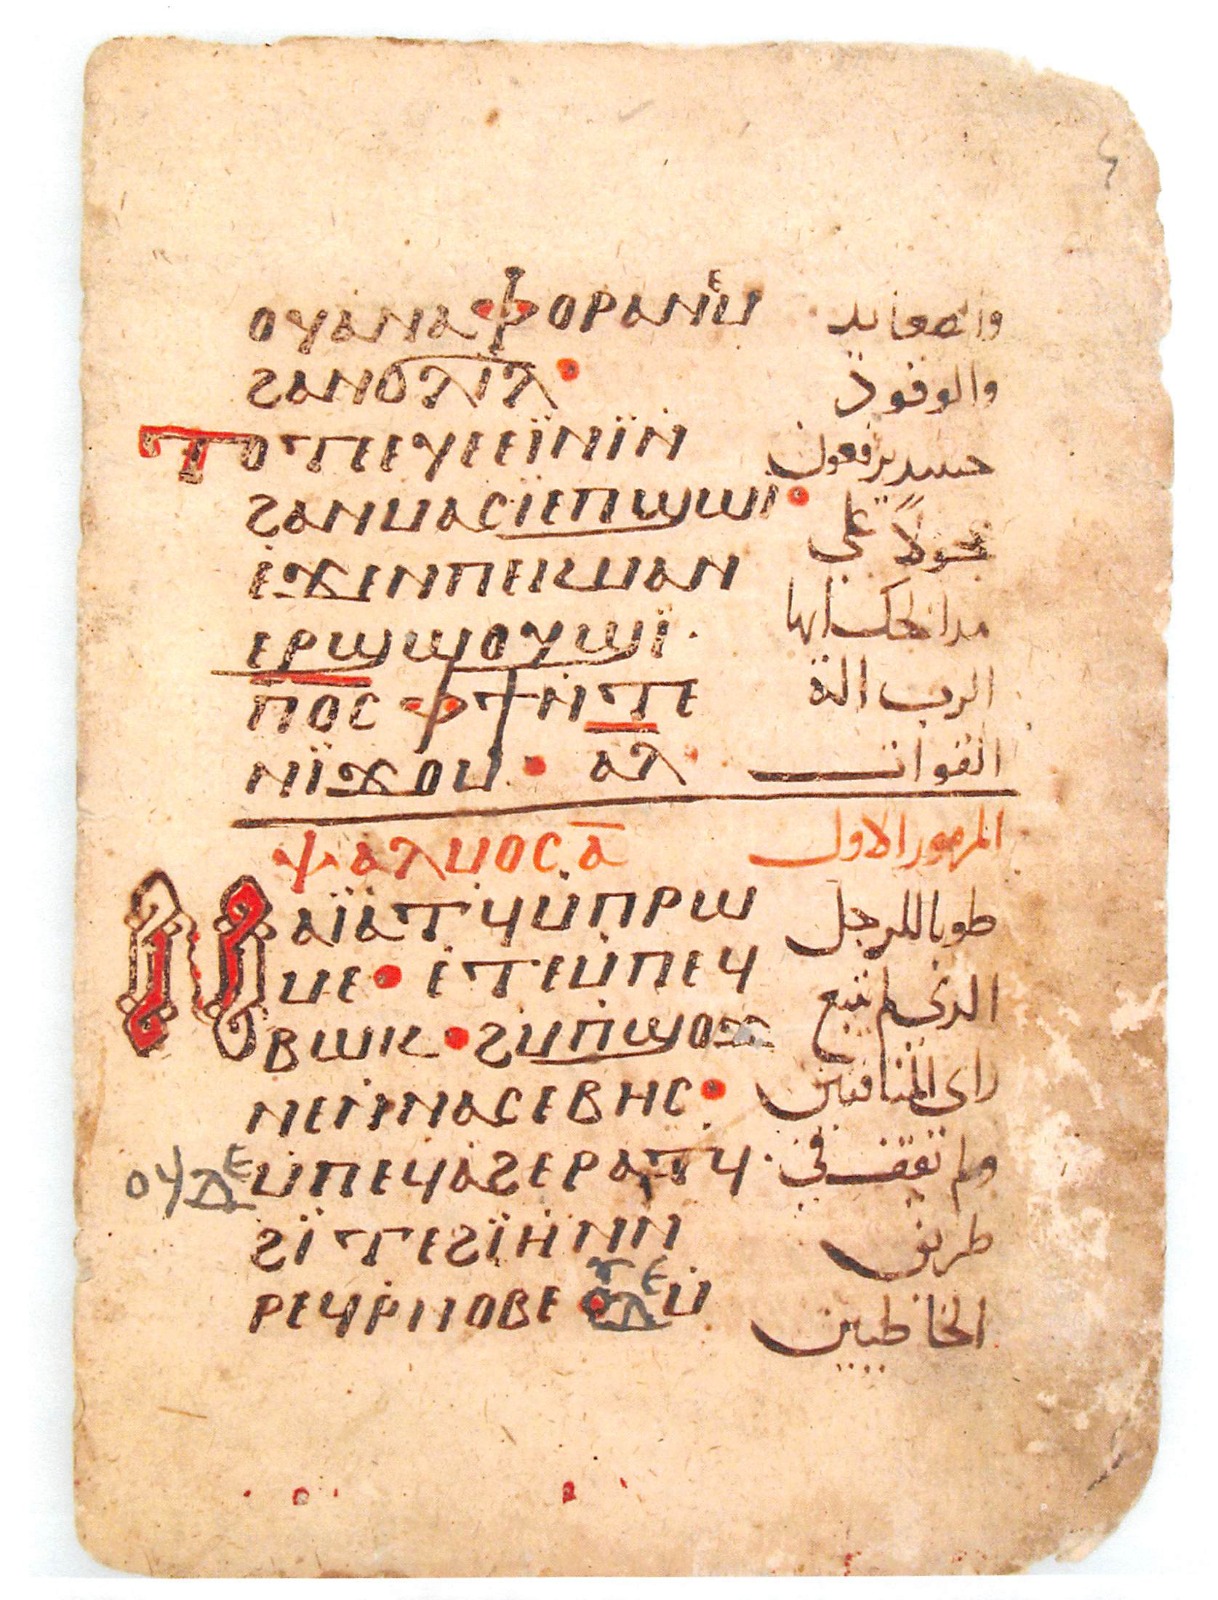 ⲟⲩⲁⲛⲁⲫⲟⲣⲁⲛⲉⲙ والصعايد
ϩⲁⲛϭⲗⲓⲗ والوقود
ⲧⲟⲧⲉⲩⲉⲉⲓ̈ⲛⲓ̈ⲛ̀ حينيد يرفعون
ϩⲁⲛⲙⲁⲥⲓⲉⲡϣⲱⲓ عجولاً على
ⲉ̀ϫⲉⲛⲡⲉⲕⲙⲁⲛ مدابحك ايها
ⲉⲣϣⲱⲟⲩϣⲓ̈ الرب الة
ⲡⲟⲥ ⲫϯⲛ̀ⲧⲉ القوات
ⲛⲓ̈ϫⲟⲙ ⲁⲗ
ⲯⲁⲗⲙⲟⲥ ⲁ̅ المزمور الاول
ⲱⲟⲩⲛⲓ̈ⲁⲧϥⲙ̀ⲡⲣⲱ طوبا للرجل
ⲙⲉ ⲉ̀ⲧⲉⲙ̀ⲡⲉϥ الذي لم يتبع
ⲃⲱⲕ ϩⲓⲡⲥⲟϭ راى المنافقين
ⲛⲉⲛ̀ⲛⲁⲥⲉⲃⲏⲥ ولم تقف في
ⲟⲩⲇⲉ ⲙ̀ⲡⲉϥⲁ̀ϩⲉⲣⲁⲧϥ طريق
ϩⲓ̈ ⲧⲉϩⲓ̈ⲏⲛⲛ̀ الخاطيين
ⲣⲉϥⲣ̀ⲛⲟⲃⲉ ⲟⲩⲇⲉ ⲙ̀